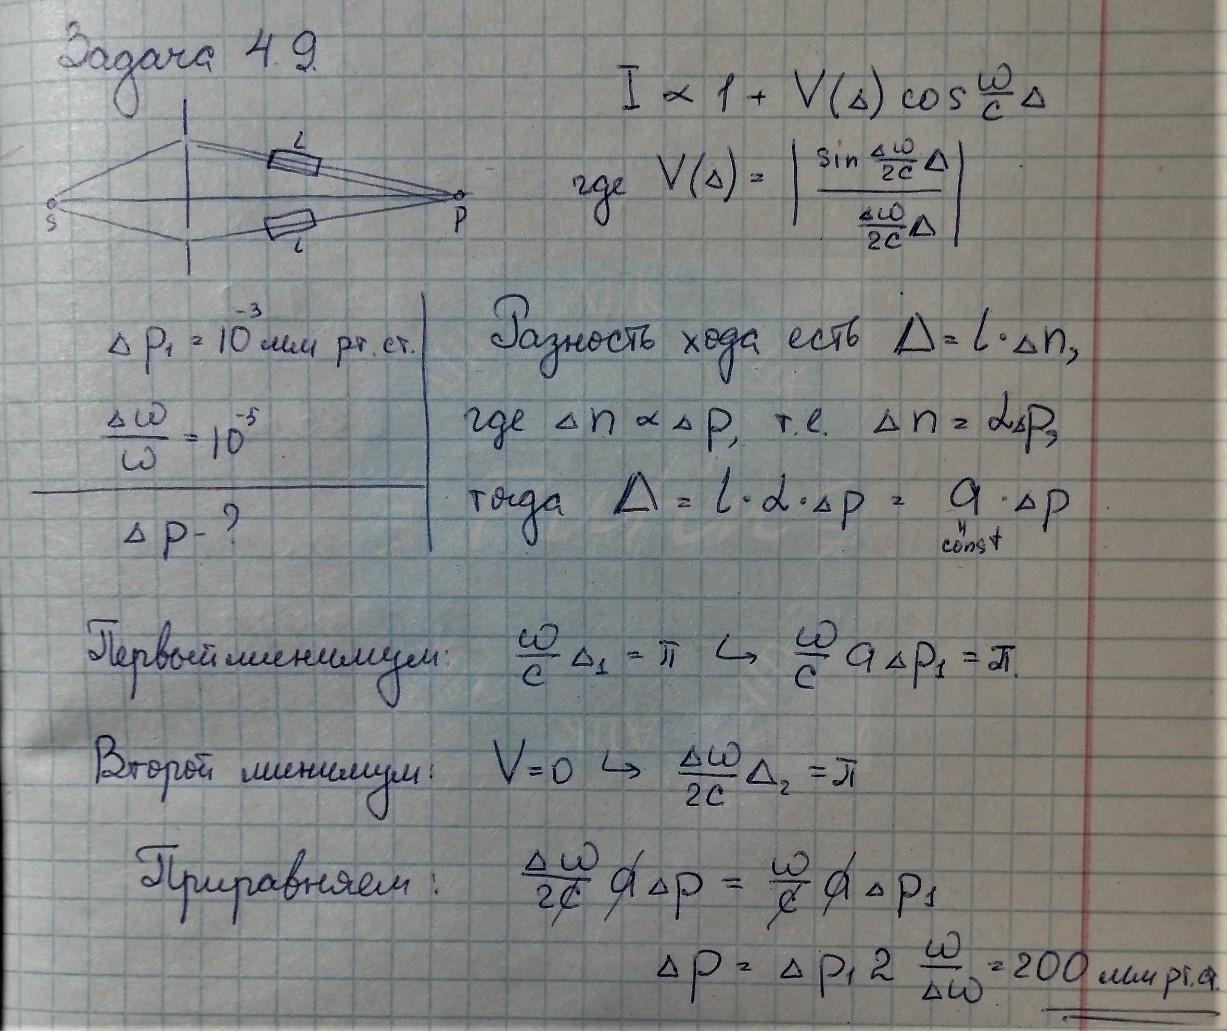 Задача 4.9.
I ∝ 1 + V(Δ) cos ω/c Δ
где V(Δ) = | sin Δω/2c Δ / Δω/2c Δ |
S
L
L
P
Δp₁ = 10⁻³ мм рт. ст.
Δω/ω = 10⁻⁵
Δp - ?
Разность хода есть Δ = l · Δn,
где Δn ∝ Δp, т.е. Δn = αΔp,
тогда Δ = l · α · Δp = a · Δp
const
Первый минимум: ω/c Δ₁ = π ↳ ω/c a Δp₁ = π.
Второй минимум: V = 0 ↳ Δω/2c Δ₂ = π
Приравняем: Δω/2c a Δp = ω/c a Δp₁
Δp = Δp₁ 2 ω/Δω = 200 мм рт. ст.